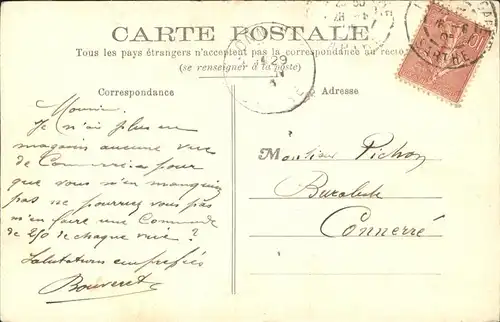 CARTE POSTALE
Tous les pays étrangers n'acceptent pas la correspondance au recto
(se renseigner à la poste)
Correspondance
Adresse
29
10
SARTHE
Je n'ai plus en
magasin aucune vue
de Commercia pour
que vous n'en manquiez
pas ne pourriez vous pas
m'en faire une Commande
de 250 de chaque vue ?
Salutations empressées
Bouveret
Monsieur Pichon
Buraliste
Connerré